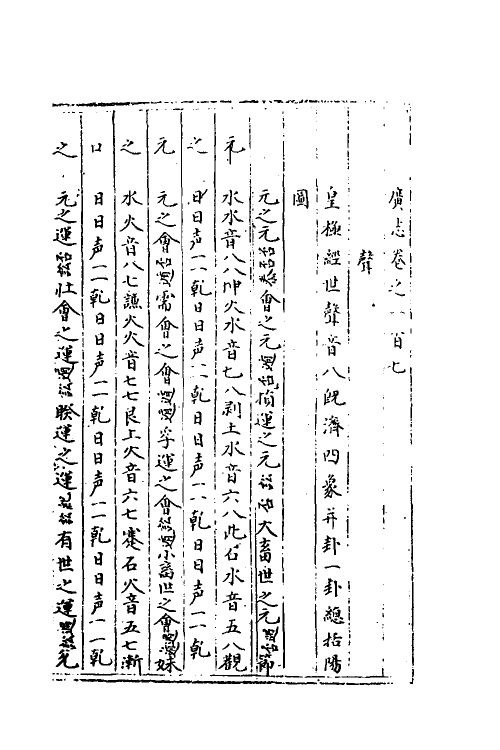 廣志卷之一百七
聲
皇極經世聲音八既濟四象并卦一卦總括陽
圖
元之元會之元損運之元大畜世之元節
元 水水音八八坤火水音七八剥土水音六八比石水音五八觀
之 日日声一一乾日日声一一乾日日声一一乾日日声一一乾
元 元之會需會之會孚運之會小畜世之會妹
之 水火音八七謙火火音七七艮土火音六七蹇石火音五七漸
口 日日声一一乾日日声一一乾日日声一一乾日日声一一乾
之 元之運壯會之運睽運之運有世之運兊